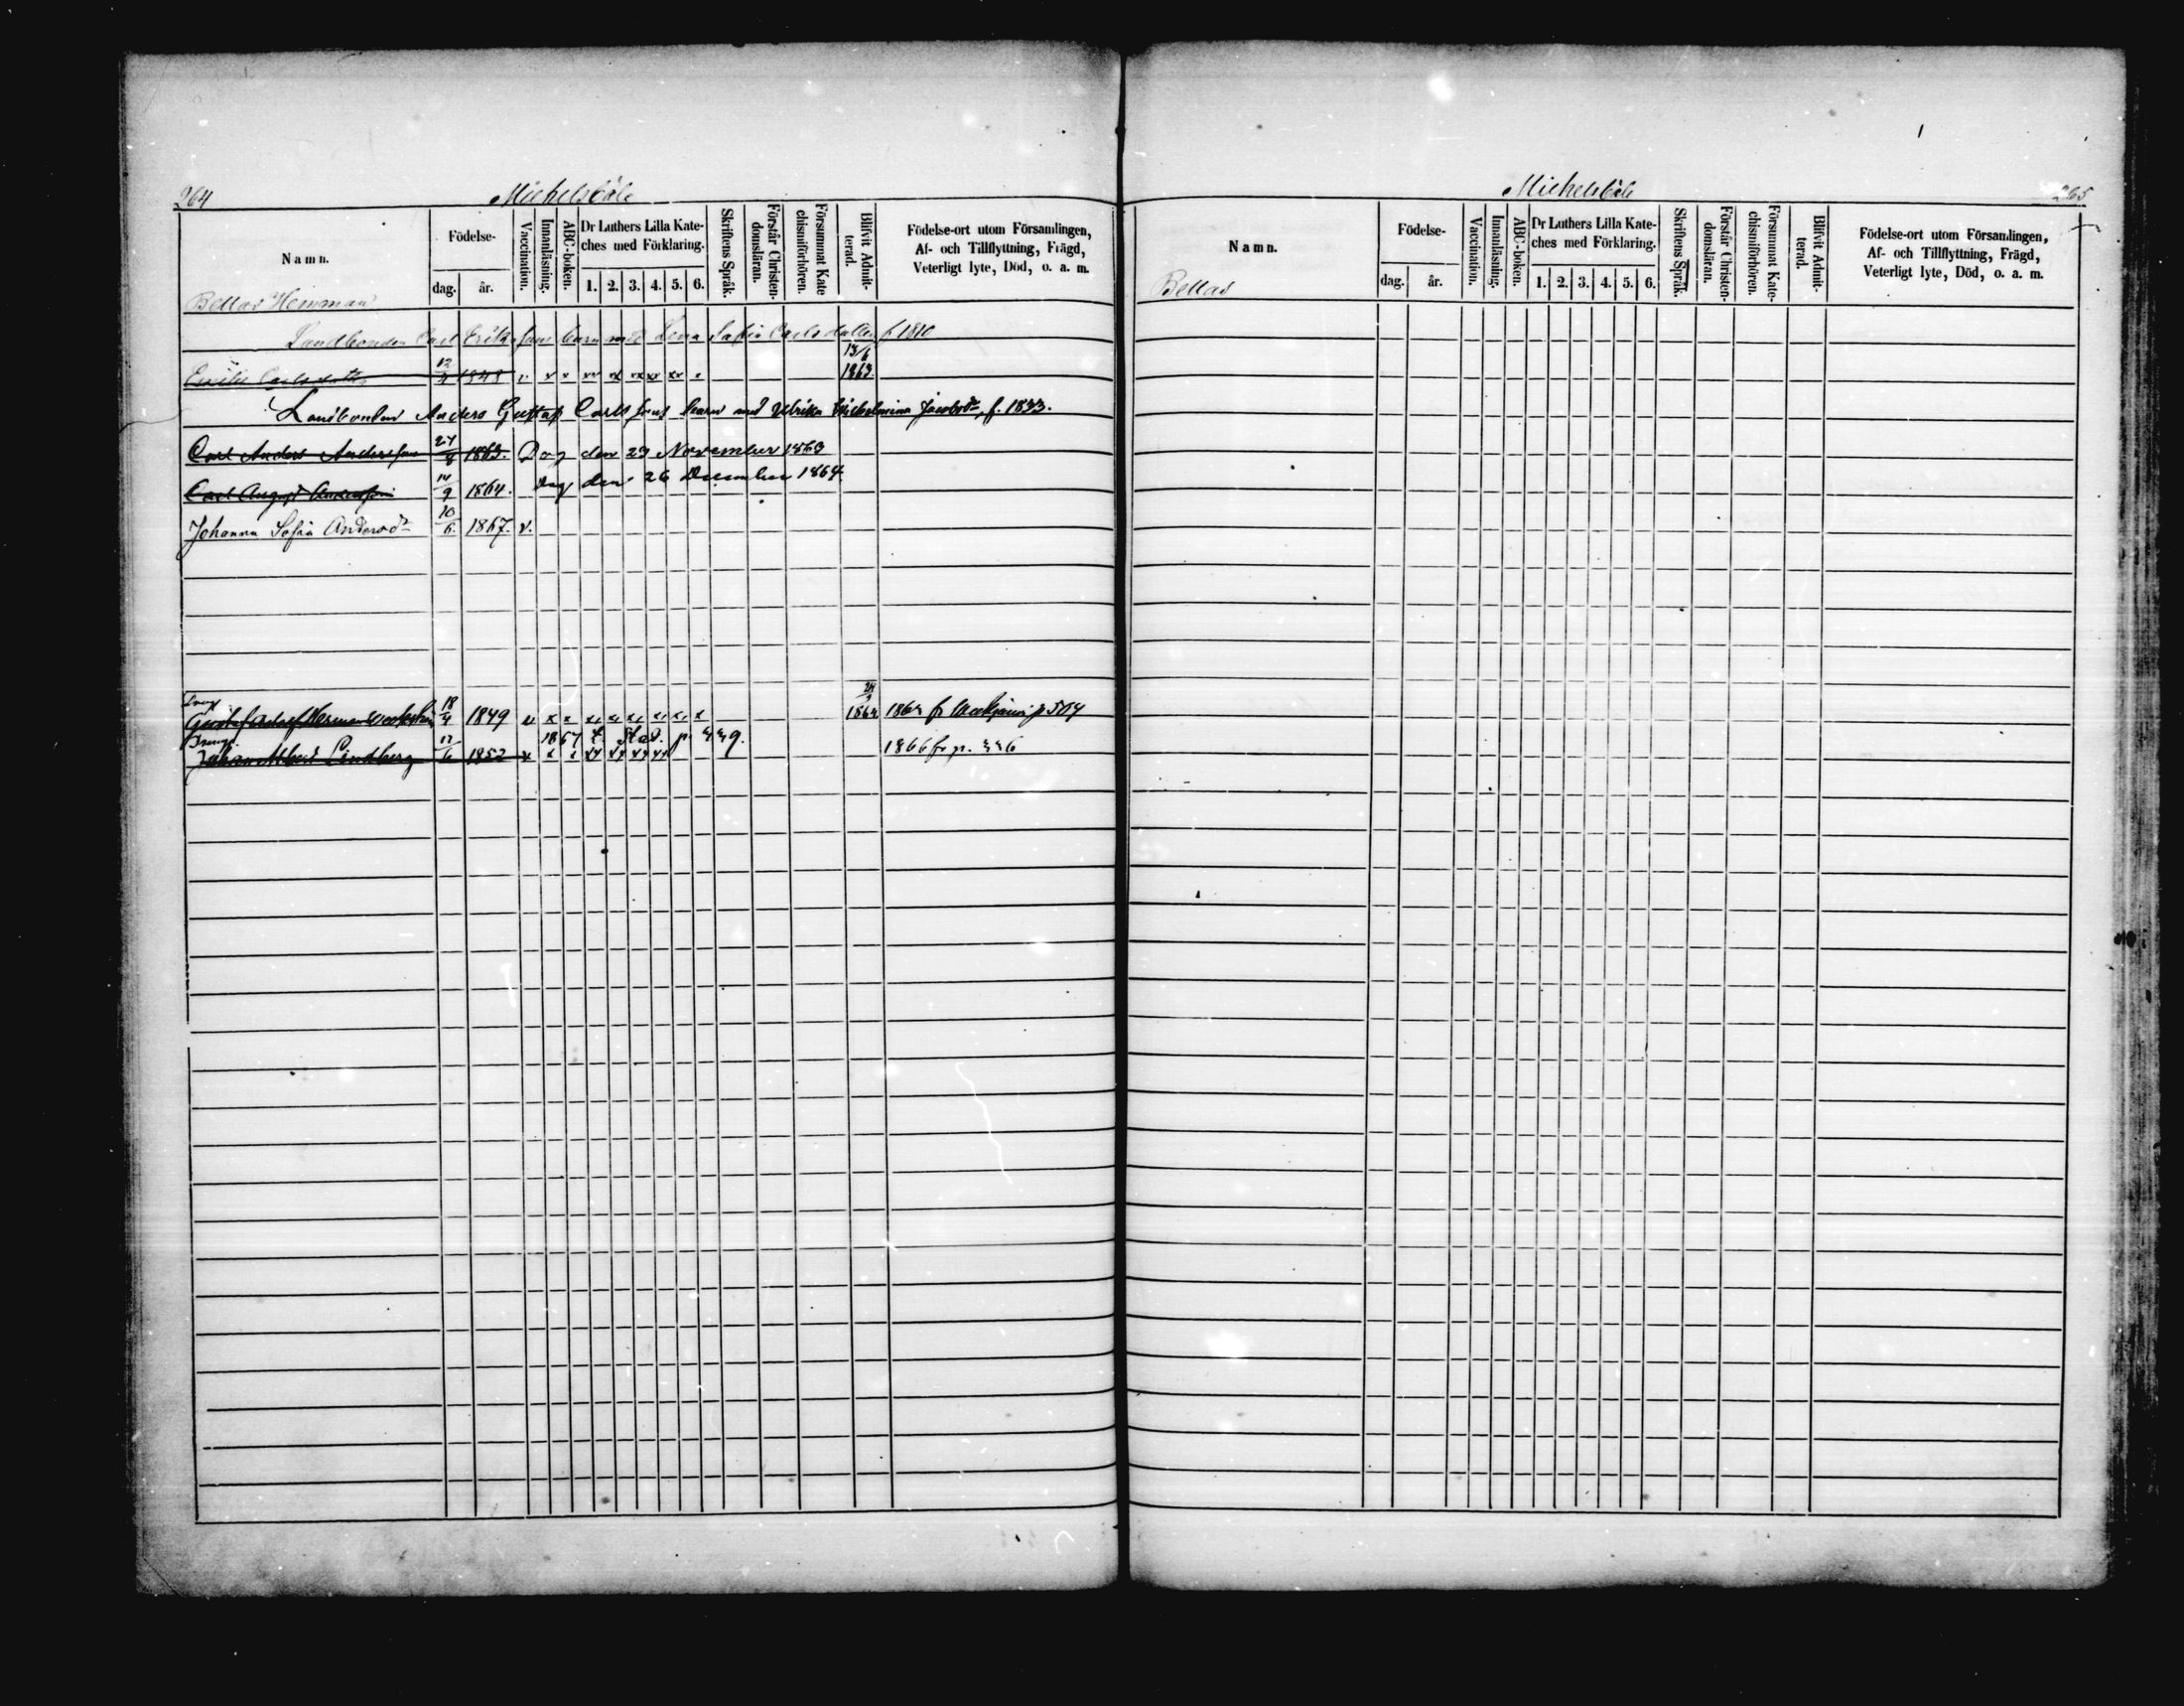 264 Michelsböle
Namn. Födelse- dag. år. Vaccination. Innanläsning. ABC-boken. Dr Luthers Lilla Kate-ches med Förklaring. 1. 2. 3. 4. 5. 6. Skriftens Språk. Förstår Christen-domsläran. Försummat Kate chismiförhören. Blifvit Admit-terad. Födelse-ort utom Församlingen, Af- och Tillflyttning, Frägd, Veterligt lyte, Död, o. a. m.
Bellas Hemman
Landbonden Carl Eriksons barn med Lena Sofia Carlsdotter f 1810
Emilie Carlsdotter 12/4 1848 v x x xx xx xx xx xx x 13/6 1863.
Landbonden Anders Gustaf Carlssons barn med Ulrika Wilhelmina Jacobsdr f. 1833.
Carl Anders Andersson 27/8 1863. Dog den 29 November 1863
Carl August Andersson 14/9 1864. Dog den 26 December 1864.
Johanna Sofia Andersdr 10/6 1867. v.
Dreng
Gustaf Adolf Herman 18/4 1849 v x x 24 1864 fr p 504
Dreng 1867 t. Stad. p.
Johan Albert Lindberg 17/6 1852 v x x 1866 fr p.
Michelsböle 265
Namn. Födelse- dag. år. Vaccination. Innanläsning. ABC-boken. Dr Luthers Lilla Kate-ches med Förklaring. 1. 2. 3. 4. 5. 6. Skriftens Språk. Förstår Christen-domsläran. Försummat Kate-chismiförhören. Blifvit Admit-terad. Födelse-ort utom Församlingen, Af- och Tillflyttning, Frägd, Veterligt lyte, Död, o. a. m.
Bellas